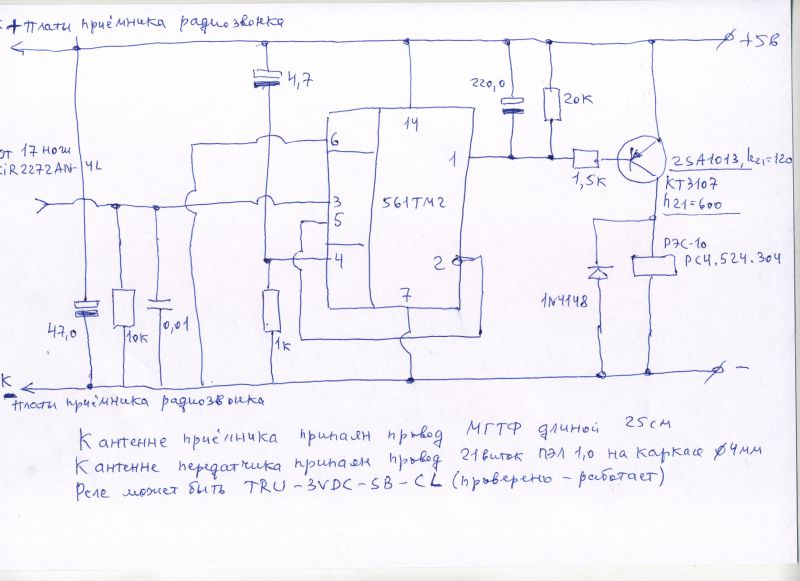 к + платы приёмника радиозвонка
+5в
4,7
220,0
20к
14
6
от 17 ножки
CIR2272AN-4L
1
1,5к
2SA1013, h21=120
КТ3107
h21=600
3
561ТМ2
5
4
2
РЭС-10
РС4.524.304
7
1N4148
47,0
10к
0,01
1к
к -
платы приёмника радиозвонка
К антенне приёмника припаян провод МГТФ длиной 25см
К антенне передатчика припаян провод 21виток ПЭЛ 1,0 на каркасе ф4мм
Реле может быть TRU-3VDC-SB-CL (проверено - работает)